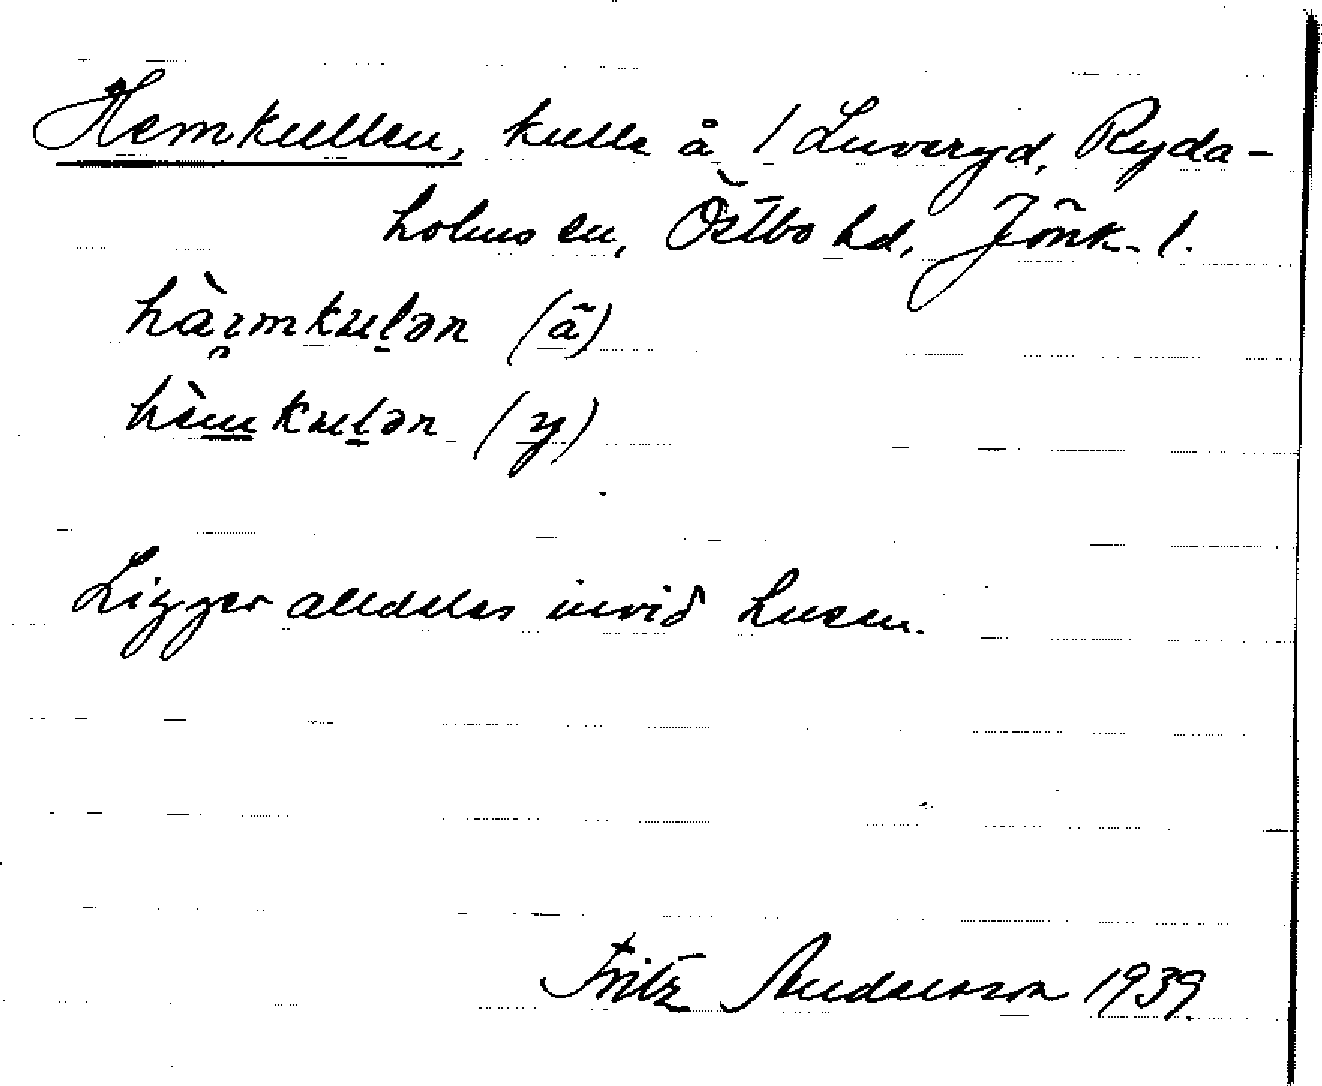 Hemkullen, kulle å 1 Luveryd, Ryda-
holms sn, Östbo hd, Jönk. l.
hàı̯mkuḻən (ä)
hèmkuḻən (y)
Ligger alldeles invid husen.
Fritz Andersson 1939.